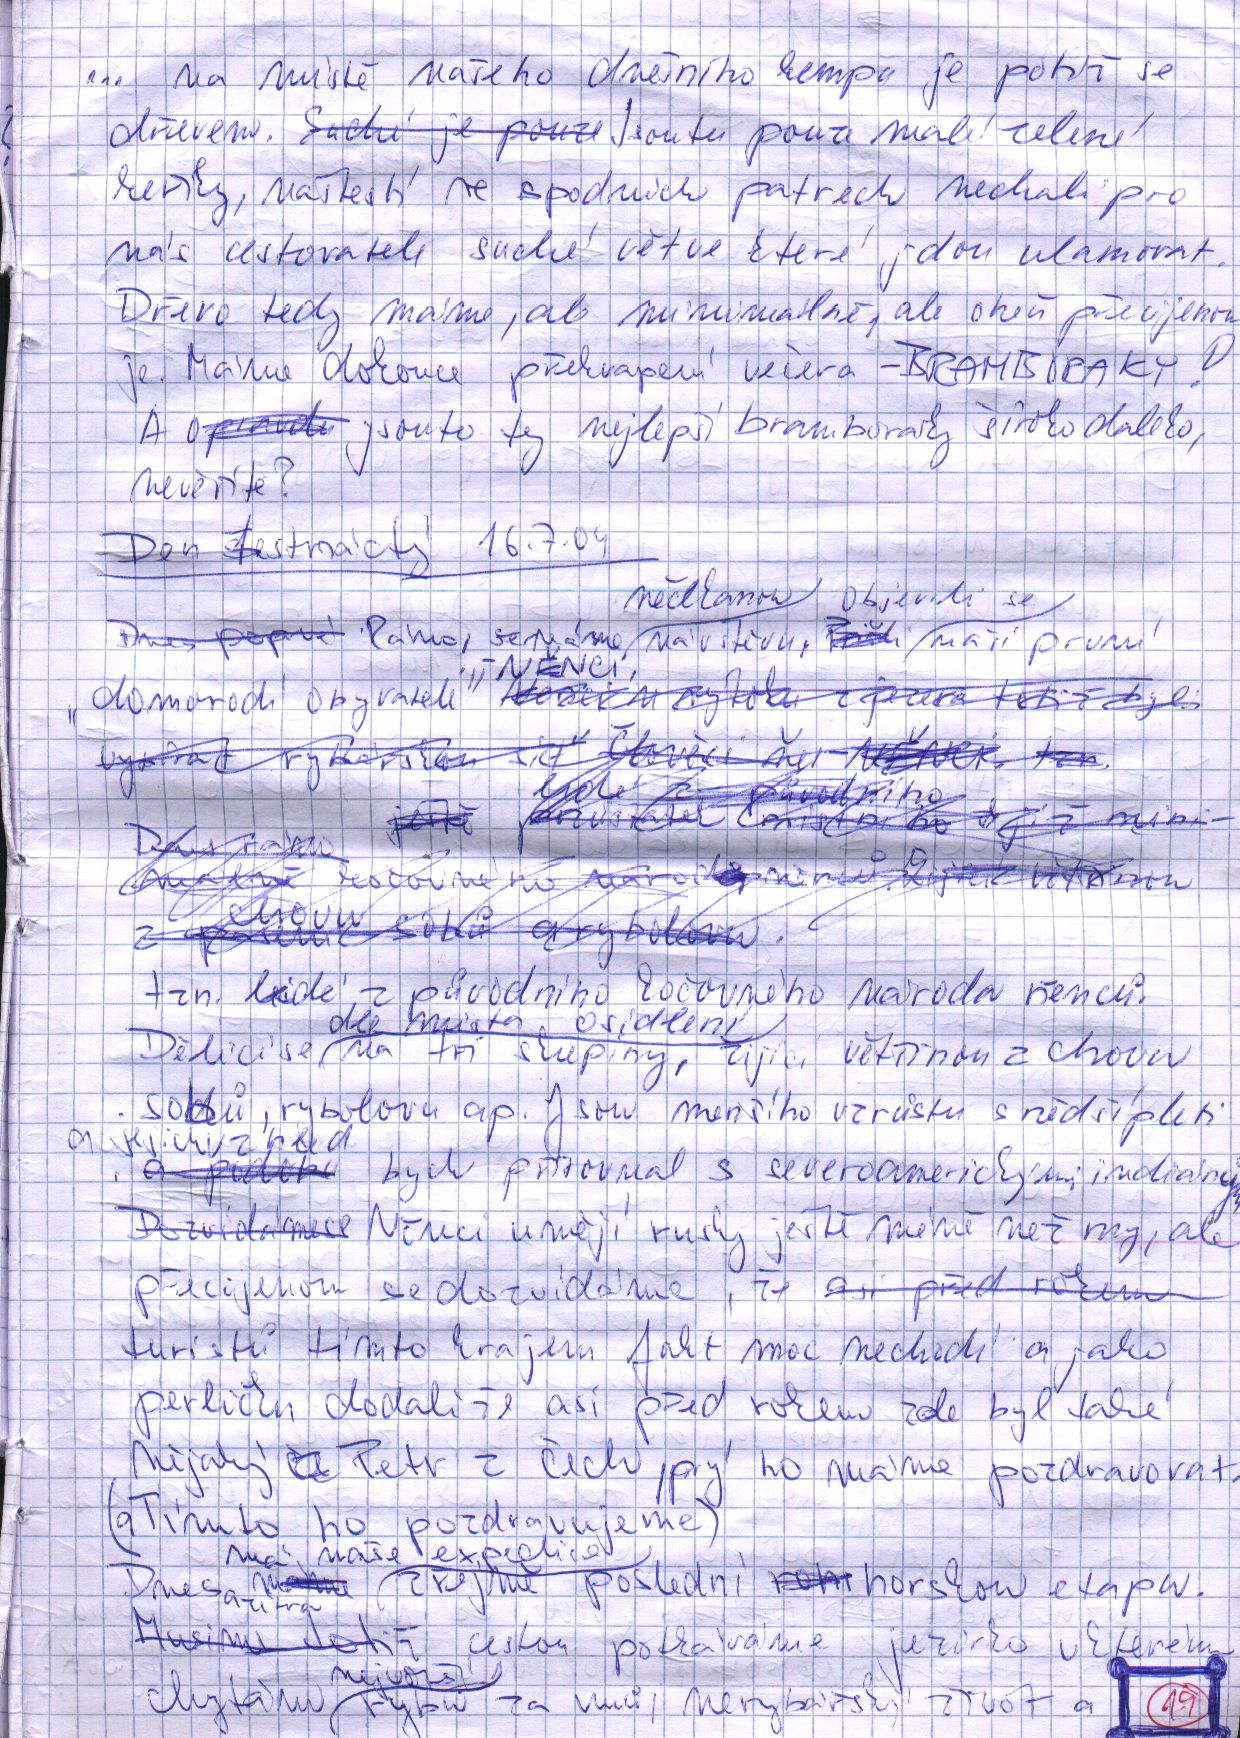 ... na místě našeho dnešního kempu je potíž se
dřevem. Suché je pouze Jsou tu pouze malé zelené
keříky, naštěstí ve spodních patrech nechali pro
nás cestovatele suché větve které jdou ulamovat.
Dřevo tedy máme, ale minimálně, ale oheň přecijenom
je. Máme dokonce překvapení večera - BRAMBORAKY!
A opravdu jsou to ty nejlepší bramboráky široko daleko,
nevěříte?
Den šestnáctý 16.7.04
nečekanou objevili se
Dnes poprvé Ráno, semnáme návštěvu, naši první
"NĚNCI"
"domorodí obyvatelé"
vybírat rybářskou síť Člověci
lidé z původního
ještě
Dnes ráno
kočovného
chovu
z sobů a rybolovu.
tzn. lidé z původního kočovného národa něnců.
dle místa osídlení
Dělící se na tři skupiny, žijící většinou z chovu
sobů, rybolovu ap. Jsou menšího vzrůstu snědší pleti
a jejich vzhled
bych přirovnal s severoamerickými indiány
Dozvídáme se Něnci umějí rusky ještě méně než my, ale
přecijenom se dozvídáme, že asi před rokem
turistů tímto krajem fakt moc nechodí a jako
perličku dodali že asi před rokem zde byl také
nějaký Petr z Čech, prý ho máme pozdravovat.
(a Tímto ho pozdravujeme)
má naše expedice
Dnes máme zřejmě poslední horskou etapu.
a zítra
Musíme totiž cestou potkáváme jezírko v kterém
největší
chytámu rybu za můj nerybářský život a
19